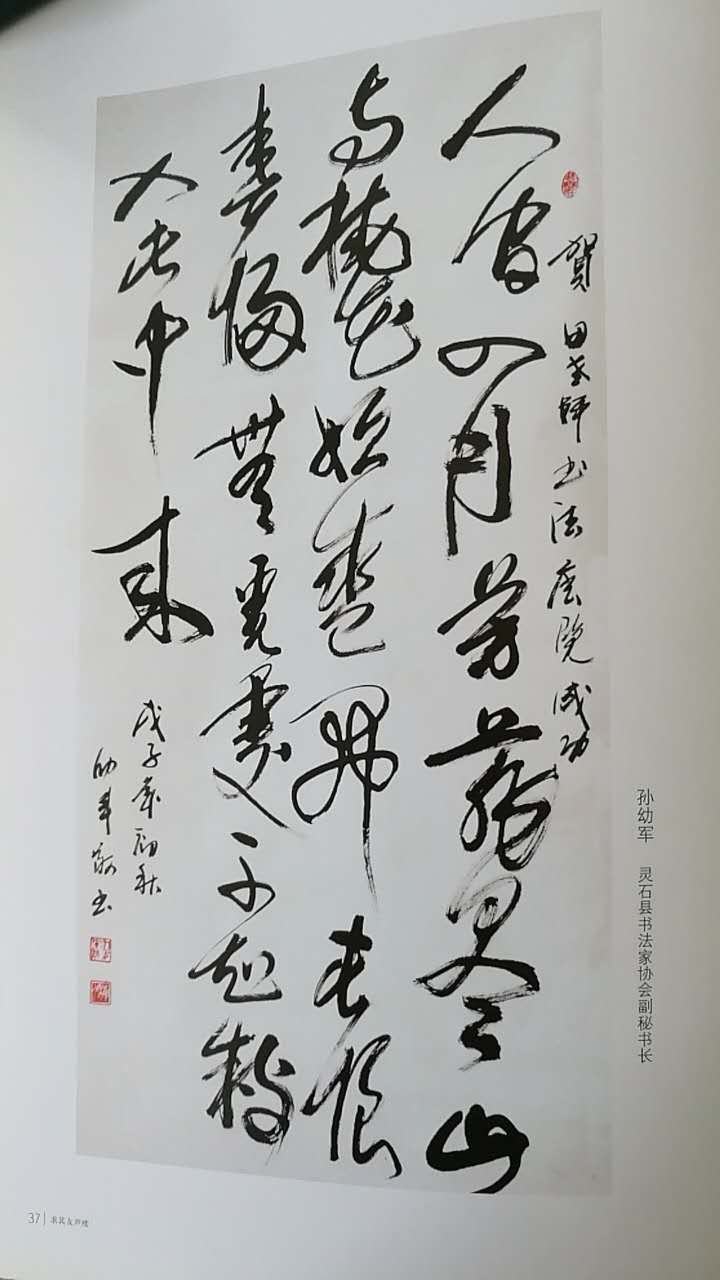 賀田老师书法展览成功
人间四月芳菲尽山
寺桃花始盛开长恨
春归無觅處不知转
入此中来
戊子年初秋
幼军敬书
孙幼军 灵石县书法家协会副秘书长
37 求其友声